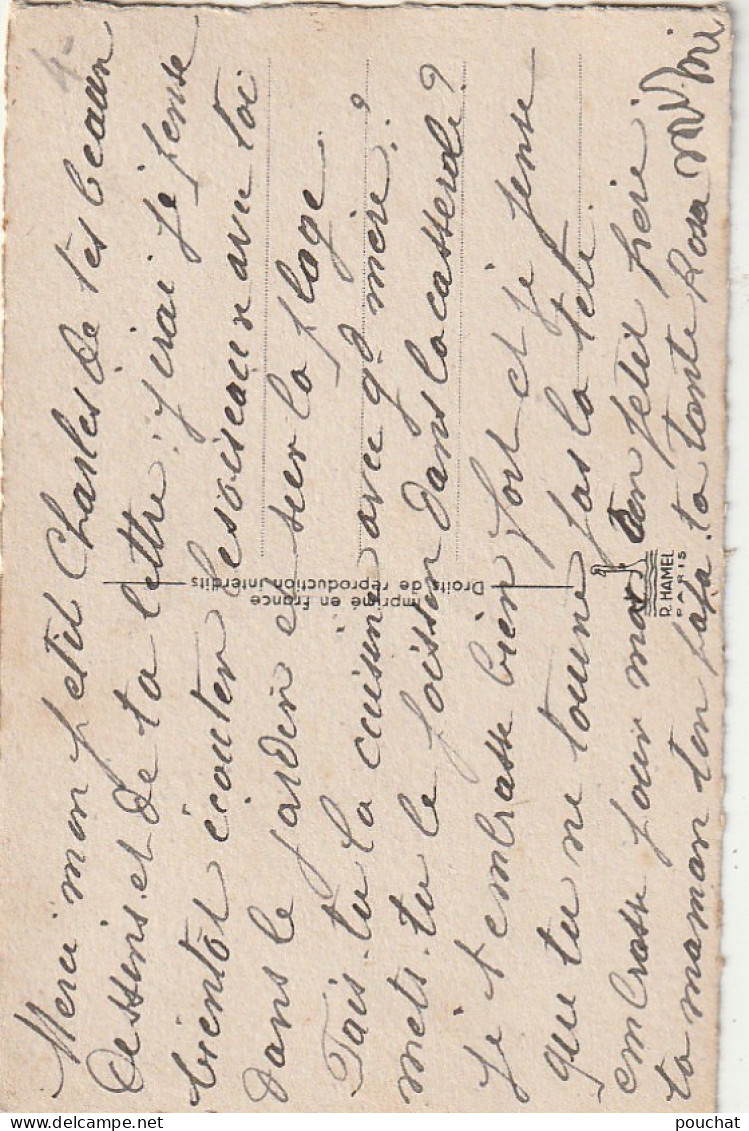 Merci mon petit Charles de tes beaux
dessins et de ta lettre. j'irai je pense
bientôt écouter les oiseaux avec toi
dans le jardin et sur la plage
Fais-tu la cuisine avec gd mère ?
mets-tu le poisson dans la casserole ?
je t'embrasse bien fort et je pense
que tu ne tourne pas la tete.
embrasse pour moi ton petit frère
ta maman ton papa. ta tante Rosa
Imprimé en France
Droits de reproduction interdits
R. HAMEL
PARIS
4-
pouchat